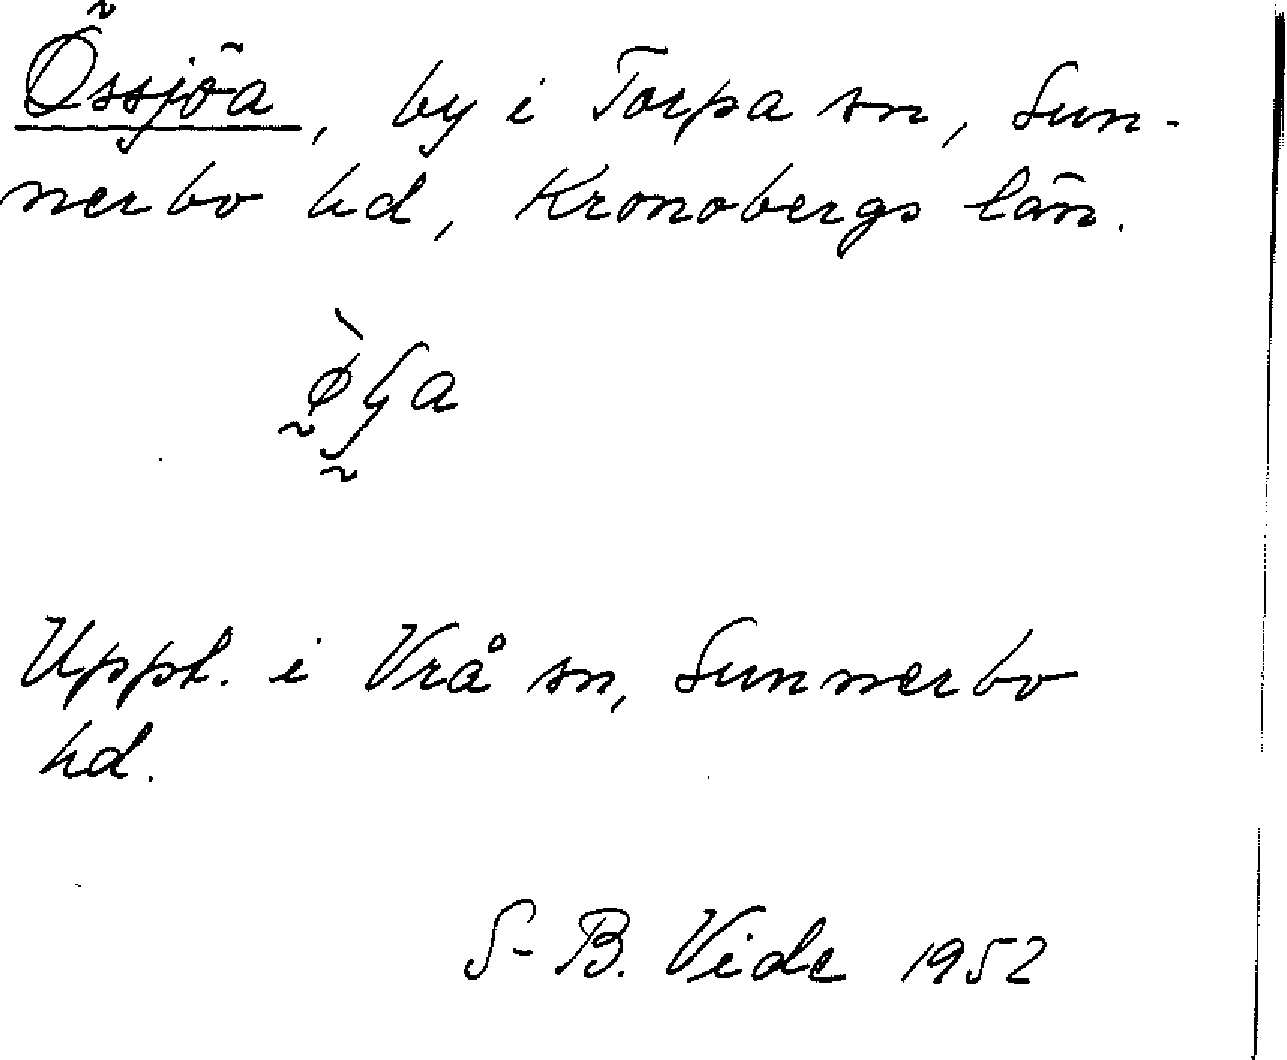 Össjöa, by i Torpa sn, Sun-
nerbo hd, Kronobergs län.
Uppt. i Vrå sn, Sunnerbo
hd.
S-B. Vide 1952